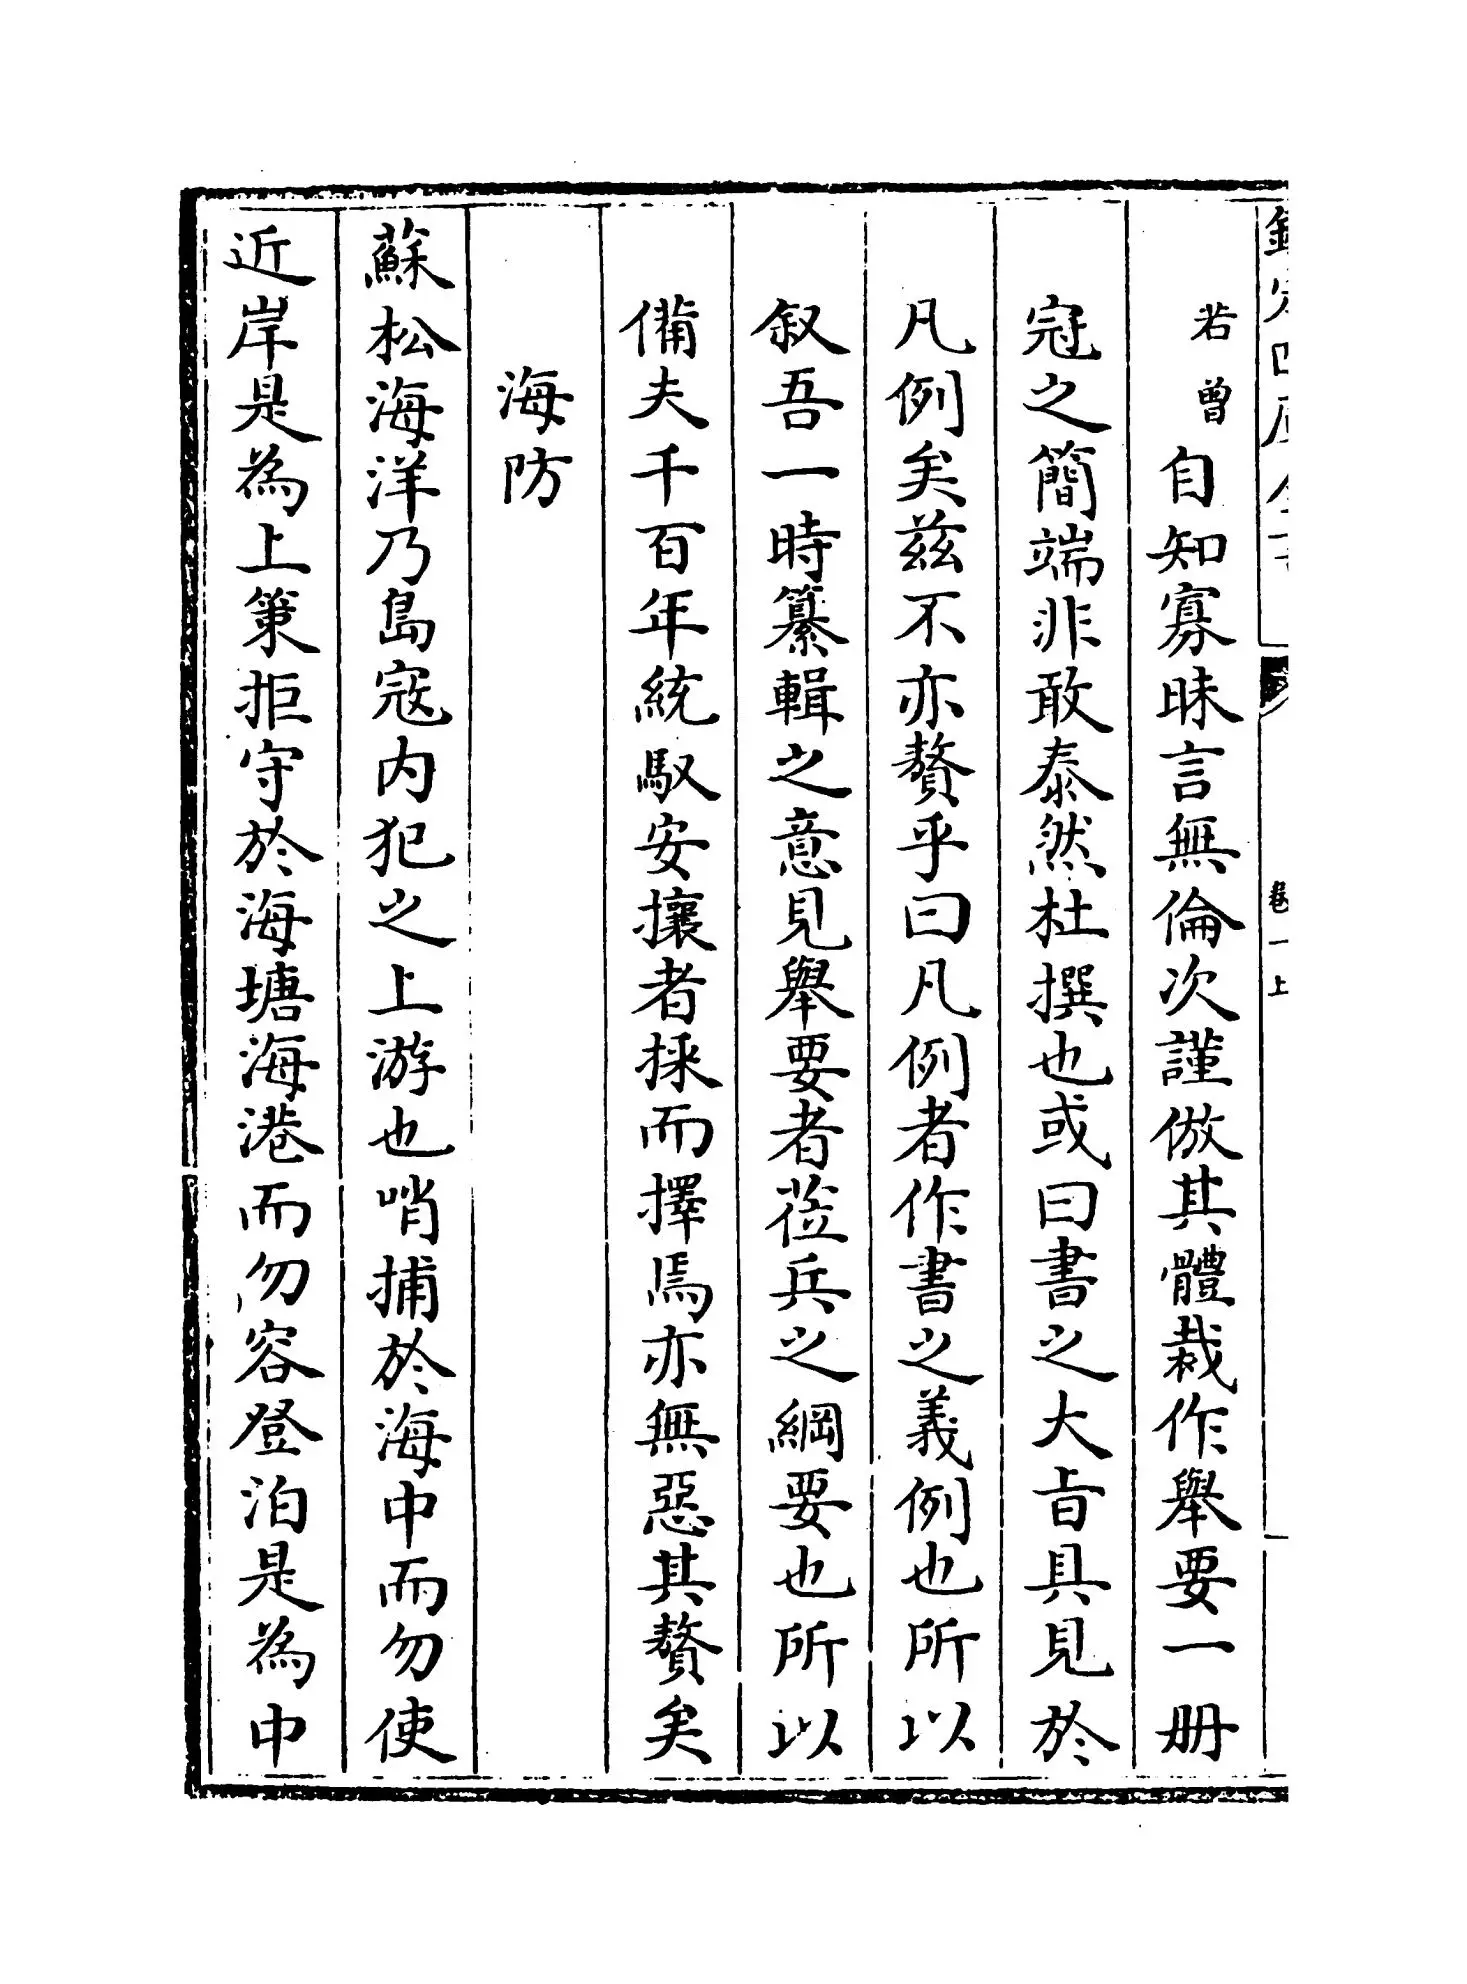 若曾自知寡昧言無倫次謹倣其體裁作舉要一册
冠之簡端非敢泰然杜撰也或曰書之大旨具見於
凡例矣兹不亦贅乎曰凡例者作書之義例也所以
叙吾一時纂輯之意見舉要者莅兵之綱要也所以
備夫千百年統馭安攘者採而擇焉亦無惡其贅矣
海防
蘇松海洋乃島寇内犯之上游也哨捕於海中而勿使
近岸是為上策拒守於海塘海港而勿容登泊是為中
卷一上